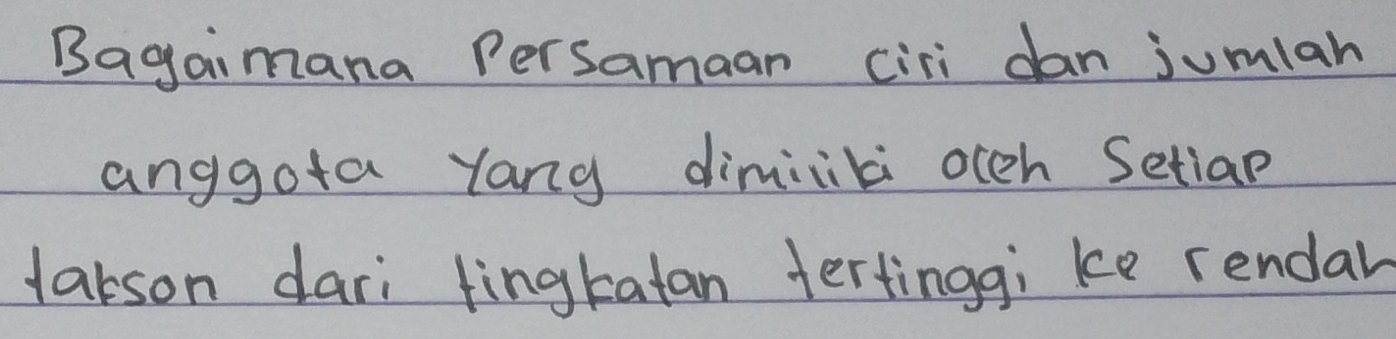 Bagaimana Persamaan ciri dan jumlah
anggota Yang dimiliki oleh Setiap
takson dari tingkatan tertinggi ke rendah